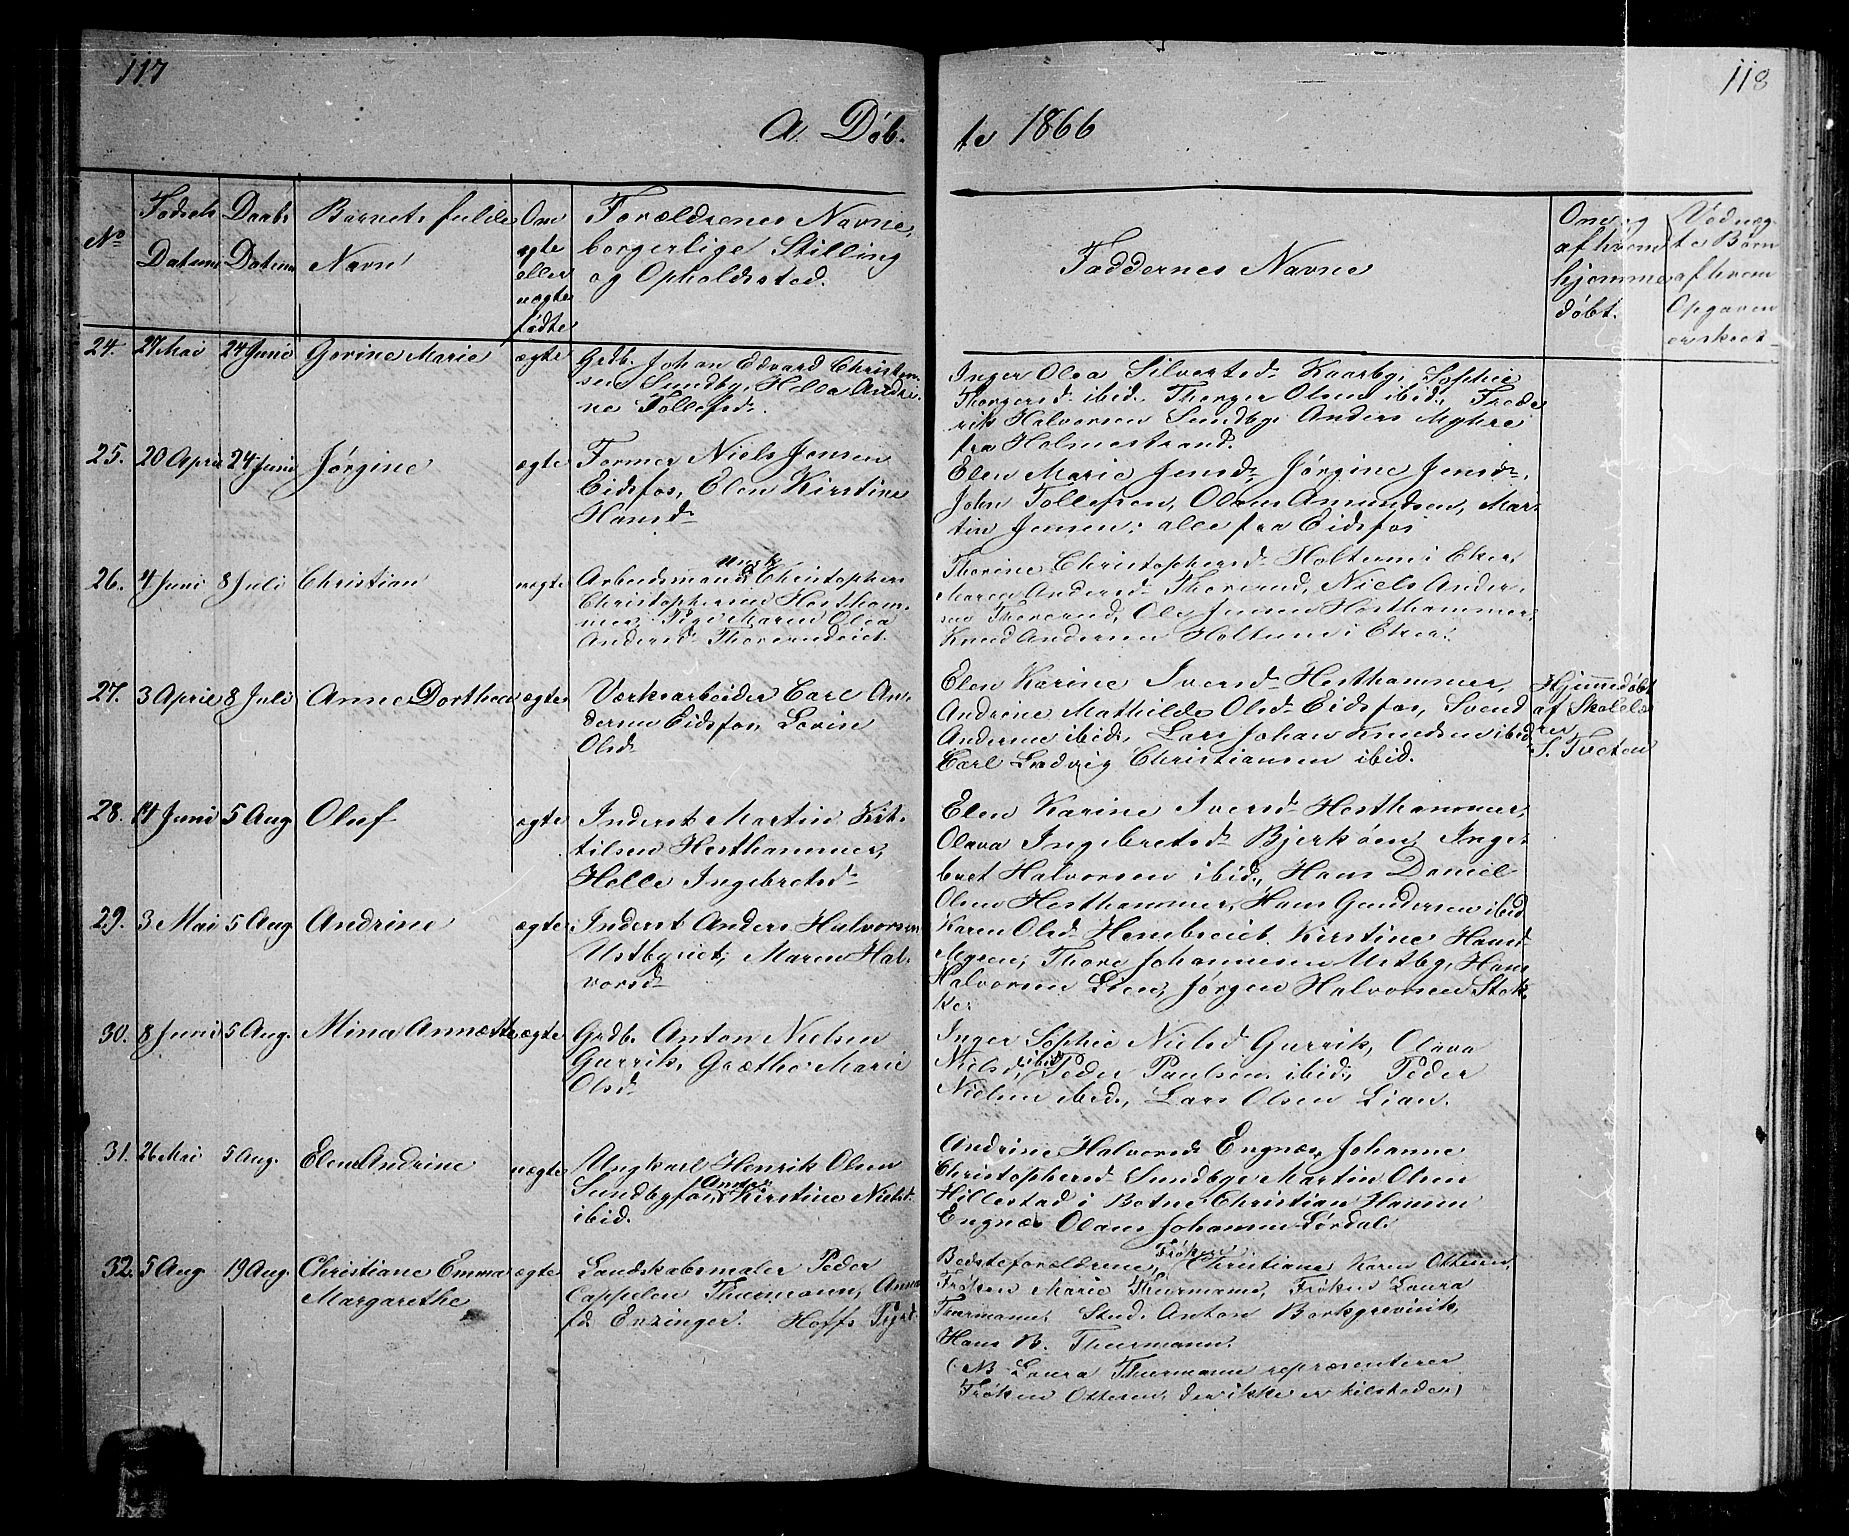 117
118
A. Døb-
te 1866
No
Fødsels
Datum
Daabs
Datum
Barnets fulde
Navn
Om
ægte
eller
uægte
fødte
Forældrenes Navne,
borgerlige Stilling
og Opholdssted.
Faddernes Navne
Om og
af hvem
hjemme
døbt.
Ved uæg
te Børn
af hvem
Opgaven
er skeet
24. 27 Mai 24 Juni Gorine Marie ægte
Grdb. Johan Edvard Christen-
sen Sundby, Helea Andri-
ne Tollefsd.
Inger Olea Silvertsd. Kaarby, Sophie
Thorgersd. ibid. Thorger Olsen ibid., Frede
rik Halvorsen Sundby. Anders Myhre
fra Holmestrand.
25. 20 April 24 Juni Jørgine ægte
Former Niels Jensen
Eidsfos, Elen Kirstine
Hansd.
Elen Marie Jensd. Jørgine Jensd.,
John Tollefsen, Olaus Amundsen, Mar-
tin Jensen; alle fra Eidsfos
26. 4 Juni 8 Juli Christian uægte
Arbeidsmand ungk Christopher
Christophersen Hestham-
mer, Pige Maren Olea
Andersd. Thorerudeiet.
Thorine Christophersd. Holtum i Eker,
Maren Andersd. Thorerud, Niels Ander-
sen Thorerud, Ole Jensen Hesthammer,
Knud Andersen Holtum i Eker.
27. 3 April 8 Juli Anne Dorthea ægte
Værksarbeider Carl An-
dersen Eidsfos, Lovise
Olsd.
Elen Karine Iversd. Hesthammer,
Andrine Mathilde Olsd. Eidsfos, Svend
Andersen ibid., Lars Johan Knudsen ibid
Carl Ludvig Christiansen ibid.
Hjemmedøbt
af Skolelæ
rer
S. Tveten
28. 14 Juni 5 Aug Oluf ægte
Inderst Martin Kit-
tilsen Hesthammer,
Helle Ingebretsd.
Elen Karine Iversd. Hesthammer,
Olava Ingebretsd. Bjerkøen, Inge-
bret Halvorsen ibid., Hans Daniel
Olsen Hesthammer, Hans Gundersen ibid
29. 3 Mai 5 Aug Andrine ægte
Inderst Anders Halvorsen
Ustbyeiet, Maren Hal-
vorsd.
Karen Olsd. Hembreiet. Kirstine Hansd.
Myren, Thore Johannesen Ustby, Hans
Halvorsen Lien, Jørgen Halvorsen Stok-
ke.
30. 8 Juni 5 Aug. Mina Annette ægte
Grdb. Anton Nielsen
Gurrik, Grethe Marie
Olsd.
Inger Sophie Nielsd Gurrik, Olava
Nielsd. ibid Peder Paulsen ibid, Peder
Nielsen ibid., Lars Olsen Lian.
31. 26 Mai 5 Aug. Elen Andrine uægte
Ungkarl Henrik Olsen
Sundbyfos Anne Kirstine Nielsd.
ibid.
Andrine Halvorsd. Engnæs, Johanne
Christophersd. Sundbye Martin Olsen
Hillestad i Botne Christian Hansen
Engnæs Olaus Johansen Lørdal.
32. 5 Aug 19 Aug. Christiane Emma ægte
Margarethe
Landskabsmaler Peder
Cappelen Thurmann, Anna
fd. Enzinger. Hoffs Prgd.
Bedsteforældrene, Frøken Christiane Karen Ottesen,
Frøken Marie Thurmann, Frøken Laura
Thurmann. Stud. Anton Borkgrevink,
Hans B. Thurmann.
(NB Laura Thurmann repræsenterer
Frøken Ottesen, der ikke er tilstede)